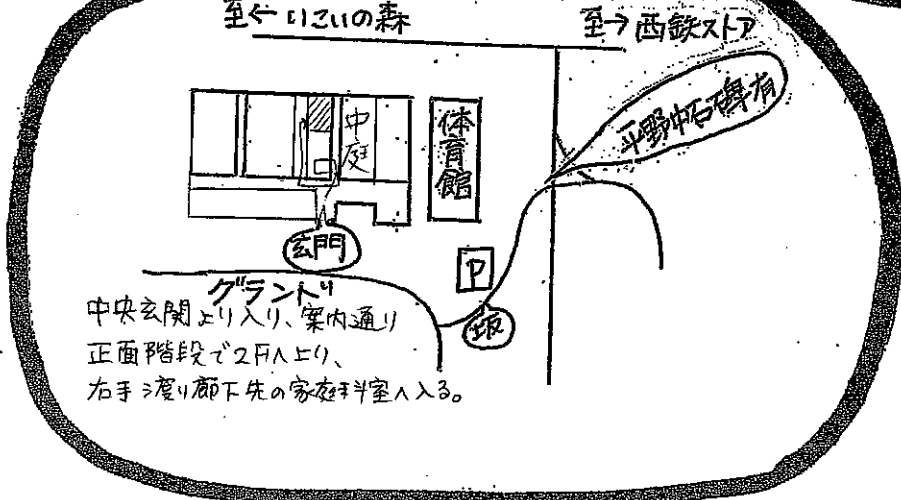 至← いこいの森
至→ 西鉄ストア
平野中石碑有
中庭
体育館
玄関
P
坂
グランド
中央玄関より入り、案内通り
正面階段で2Fへ上り、
右手渡り廊下先の家庭科室へ入る。